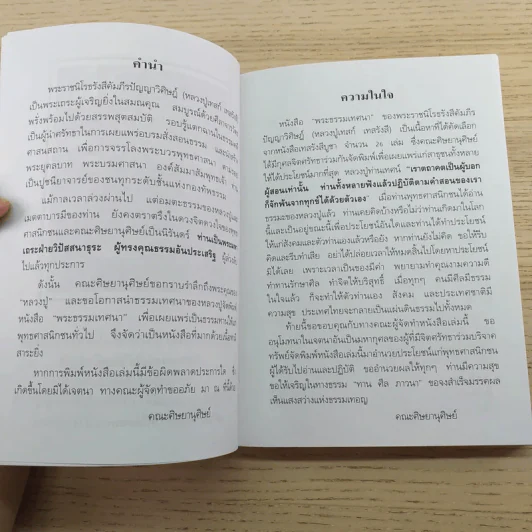 คำนำ
พระราชนิโรธรังสีคัมภีรปัญญาวิศิษฏ์ (หลวงปู่เทสก์ เทสรังสี)
เป็นพระเถระผู้เจริญยิ่งในสมณคุณ สมบูรณ์ด้วยศีลาจารวัตร
พรั่งพร้อมไปด้วยสรรพสุตสมบัติ รอบรู้แตกฉานใน
เป็นผู้นำศรัทธาในการเผยแพร่อบรมสั่งสอนธรรม
ศาสนสถาน เพื่อการจรรโลงพระบวรพุทธศาสนา ตาม
พระยุคลบาท พระบรมศาสนา องค์สัมมาสัมพุทธเจ้า
เป็นปูชนียาจารย์ของชนทุกระดับชั้นแห่งกองทัพธรรม
แม้กาลเวลาล่วงผ่านไป แต่อมตะธรรมของหลวงปู่
เมตตาบารมีของท่าน ยังคงตราตรึงในดวงจิตดวงใจของ
พุทธศาสนิกชนและคณะศิษยานุศิษย์เป็นนิรันดร์ ท่านเป็นพระมหา
เถระฝ่ายวิปัสสนาธุระ ผู้ทรงคุณธรรมอันประเสริฐ
ไปแล้วทุกประการ
ดังนั้น คณะศิษยานุศิษย์ขอกราบรำลึกถึงพระคุณของ
"หลวงปู่" และขอโอกาสนำธรรมเทศนาของหลวงปู่จัดพิมพ์
หนังสือ "พระธรรมเทศนา" เพื่อเผยแพร่เป็นธรรมทานให้แก่
พุทธศาสนิกชนทั่วไป จึงจัดว่าเป็นหนังสือที่มากด้วยเนื้อหา
สาระยิ่ง
หากการพิมพ์หนังสือเล่มนี้มีข้อผิดพลาดประการใด ซึ่ง
เกิดขึ้นโดยมิได้เจตนา ทางคณะผู้จัดทำขออภัย มา ณ ที่นี้ด้วย
คณะศิษยานุศิษย์
ความในใจ
หนังสือ "พระธรรมเทศนา" ของพระราชนิโรธรังสีคัมภีร
ปัญญาวิศิษฏ์ (หลวงปู่เทสก์ เทสรังสี) เป็นเนื้อหาที่ได้คัดเลือก
จากหนังสือเทสรังสีบูชา จำนวน 26 เล่ม ซึ่งคณะศิษยานุศิษย์
ได้มีกุศลจิตศรัทธาร่วมกันจัดพิมพ์เพื่อเผยแพร่แก่สาธุชนทั้งหลาย
ให้ได้ประโยชน์มากที่สุด หลวงปู่ท่านเทศน์ "เราตถาคตเป็นผู้บอก
ผู้สอนเท่านั้น ท่านทั้งหลายพึงแล้วปฏิบัติตามคำสอนของเรา
ก็จักพ้นจากทุกข์ได้ด้วยตัวเอง" เมื่อท่านพุทธศาสนิกชนได้อ่าน
ธรรมะของหลวงปู่แล้ว ท่านเคยคิดบ้างหรือไม่ว่าท่านเกิดมาในโลก
นี้และเป็นอยู่ขณะนี้เพื่อประโยชน์อันใดและท่านได้ทำประโยชน์
ให้แก่สังคมและตัวท่านเองแล้วหรือยัง หากท่านยังไม่คิด ขอให้รีบ
คิดและรีบทำเสีย อย่าได้ปล่อยเวลาให้หมดสิ้นไปโดยหาประโยชน์
มิได้เลย เพราะเวลาเป็นของมีค่า พยายามทำคุณงามความดี
ทำทานรักษาศีล ทำจิตให้บริสุทธิ์ เมื่อทุกๆ คนมีศีลมีธรรม
ในใจแล้ว ก็จะทำให้ตัวท่านเอง สังคม และประเทศชาติมี
ความสุข ประเทศไทยจะกลายเป็นแผ่นดินธรรมไปทั้งหมด
ท้ายนี้ขอขอบคุณกับทางคณะผู้จัดทำหนังสือเล่มนี้ ขอ
อนุโมทนาในเจตนาอันเป็นมหากุศลของผู้ที่มีจิตศรัทธาร่วมบริจาค
ทรัพย์จัดพิมพ์หนังสือเล่มนี้มาอำนวยประโยชน์แก่พุทธศาสนิกชน
ผู้ได้รับไปอ่านและปฏิบัติ ขออำนวยผลให้ทุกๆ ท่านมีความสุข
ขอให้เจริญในทางธรรม "ทาน ศีล ภาวนา" ขอจงสำเร็จมรรคผล
เห็นแสงสว่างแห่งธรรมเทอญ
คณะศิษยานุศิษย์